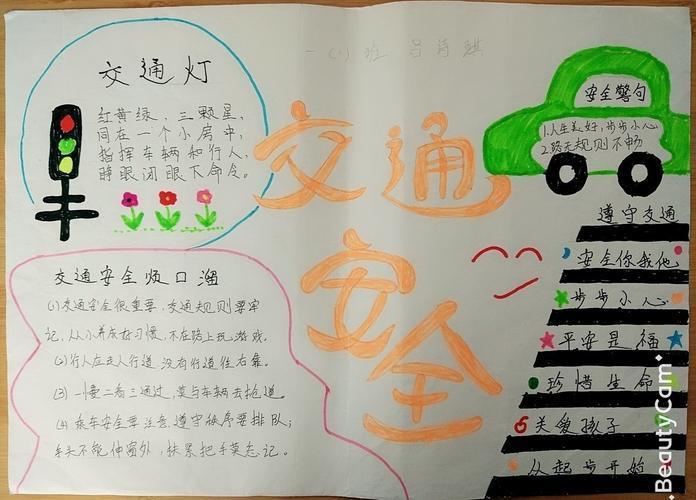 一(1)班 吕诗琪
交通灯
红黄绿,三颗星,
同在一个小房中,
指挥车辆和行人,
睁眼闭眼下命令。
交通
安
全
安全警句
1.人生美好,步步小心
2.路无规则不畅
遵守交通
安全你我他
步步小心
平安是福
珍惜生命
关爱孩子
从起步开始
交通安全顺口溜
(1)交通安全很重要,交通规则要牢
记,从小养成好习惯,不在路上玩游戏。
(2)行人应走人行道,没有行道往右靠。
(3)一慢二看三通过,莫与车辆去抢道。
(4)乘车安全要注意,遵守秩序要排队;
手头不能伸窗外,扶紧把手莫忘记。
BeautyCam